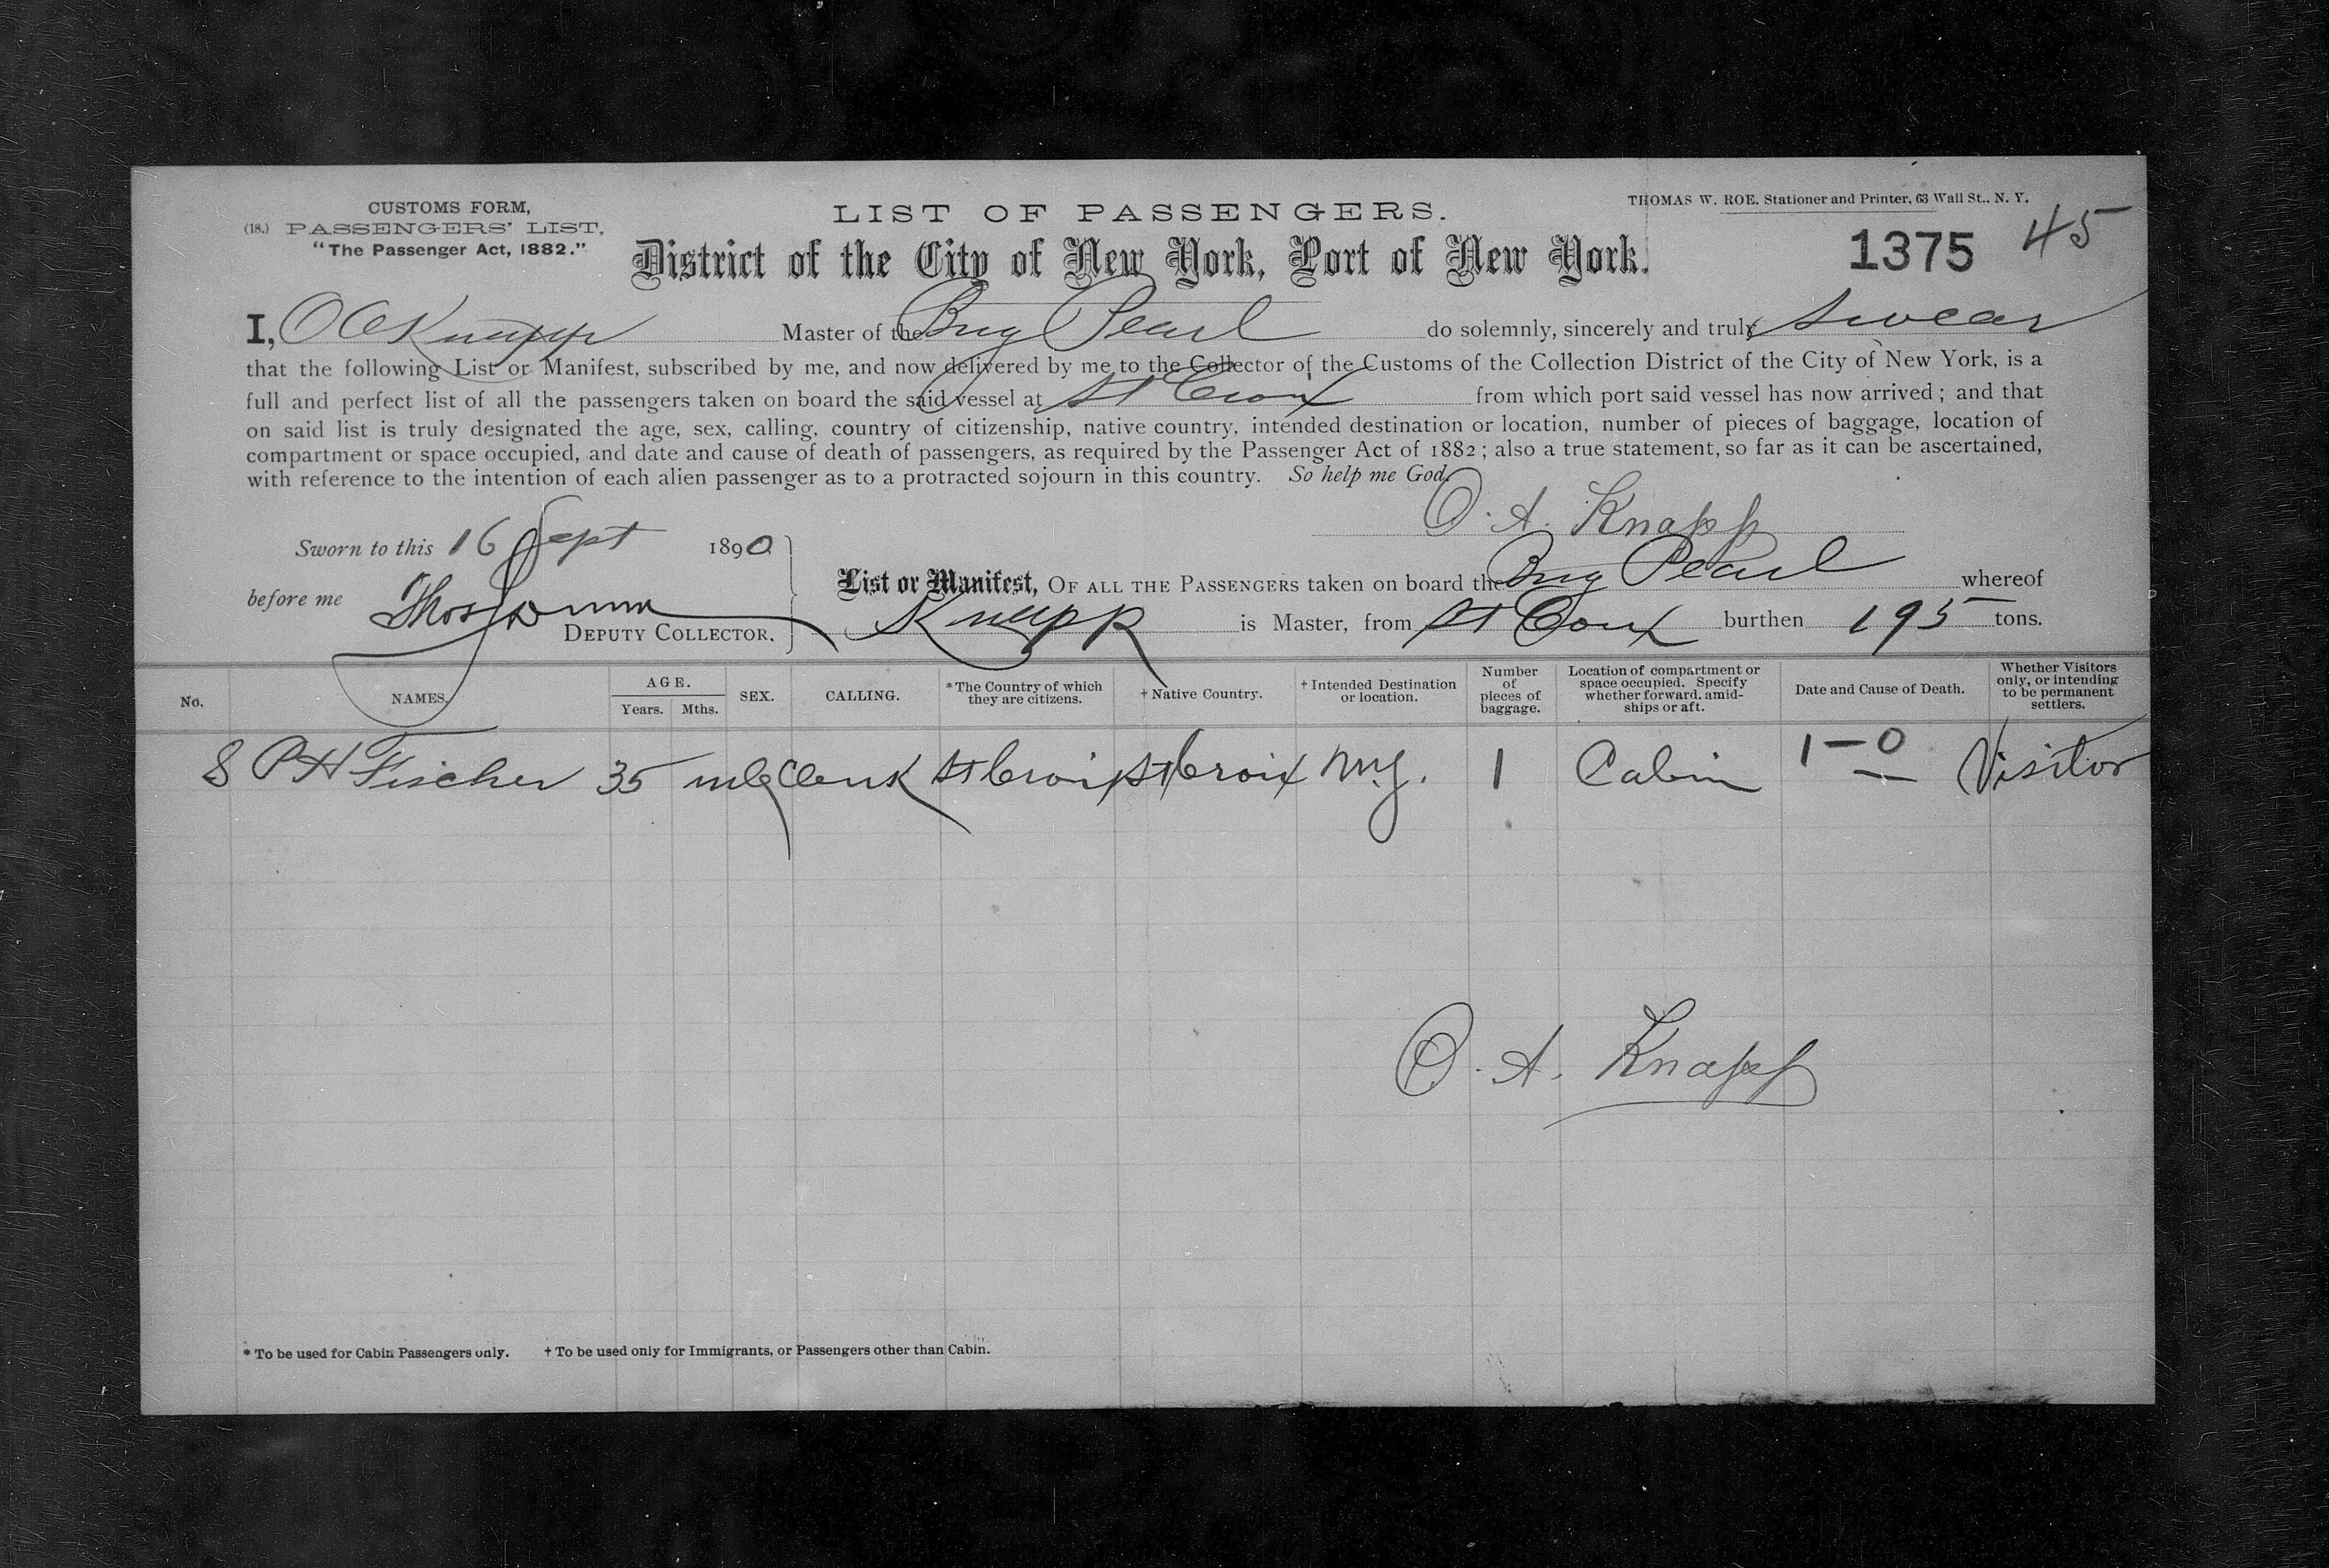 CUSTOMS FORM,
(18.) PASSENGERS' LIST,
"The Passenger Act, 1882."
LIST OF PASSENGERS.
THOMAS W. ROE. Stationer and Printer, 63 Wall St., N. Y.
District of the City of New York, Port of New York.
1375 45
I, O A Knapp Master of the Brig Pearl do solemnly, sincerely and truly swear
that the following List or Manifest, subscribed by me, and now delivered by me to the Collector of the Customs of the Collection District of the City of New York, is a
full and perfect list of all the passengers taken on board the said vessel at St Croix from which port said vessel has now arrived; and that
on said list is truly designated the age, sex, calling, country of citizenship, native country, intended destination or location, number of pieces of baggage, location of
compartment or space occupied, and date and cause of death of passengers, as required by the Passenger Act of 1882; also a true statement, so far as it can be ascertained,
with reference to the intention of each alien passenger as to a protracted sojourn in this country. So help me God.
O. A. Knapp
Sworn to this 16 Sept 1890
before me Thos
DEPUTY COLLECTOR.
List or Manifest, OF ALL THE PASSENGERS taken on board the Brig Pearl whereof
Knapp is Master, from St Croix burthen 195 tons.
No. NAMES. AGE. Years. Mths. SEX. CALLING. *The Country of which they are citizens. † Native Country. † Intended Destination or location. Number of pieces of baggage. Location of compartment or space occupied. Specify whether forward, amidships or aft. Date and Cause of Death. Whether Visitors only, or intending to be permanent settlers.
P H Fischer 35 mle Clerk St Croix St Croix N.Y. 1 Cabin 1-0 Visitor
O. A. Knapp
* To be used for Cabin Passengers only. † To be used only for Immigrants, or Passengers other than Cabin.